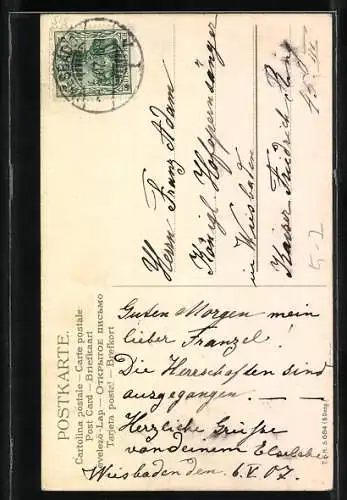 POSTKARTE.
Cartolina postale – Carte postale
Post Card – Briefkaart
Levelező-Lap – Открытое письмо
Tarjeta postal – Brefkort
Herrn Franz Adam
Königl. Hofopernsänger
in Wiesbaden
Kaiser Friedrich Ring
Guten Morgen mein
lieber Franzel!
Die Herrschaften sind
ausgegangen. —
Herzliche Grüsse
von deinem
Wiesbaden den 6. V. 07.